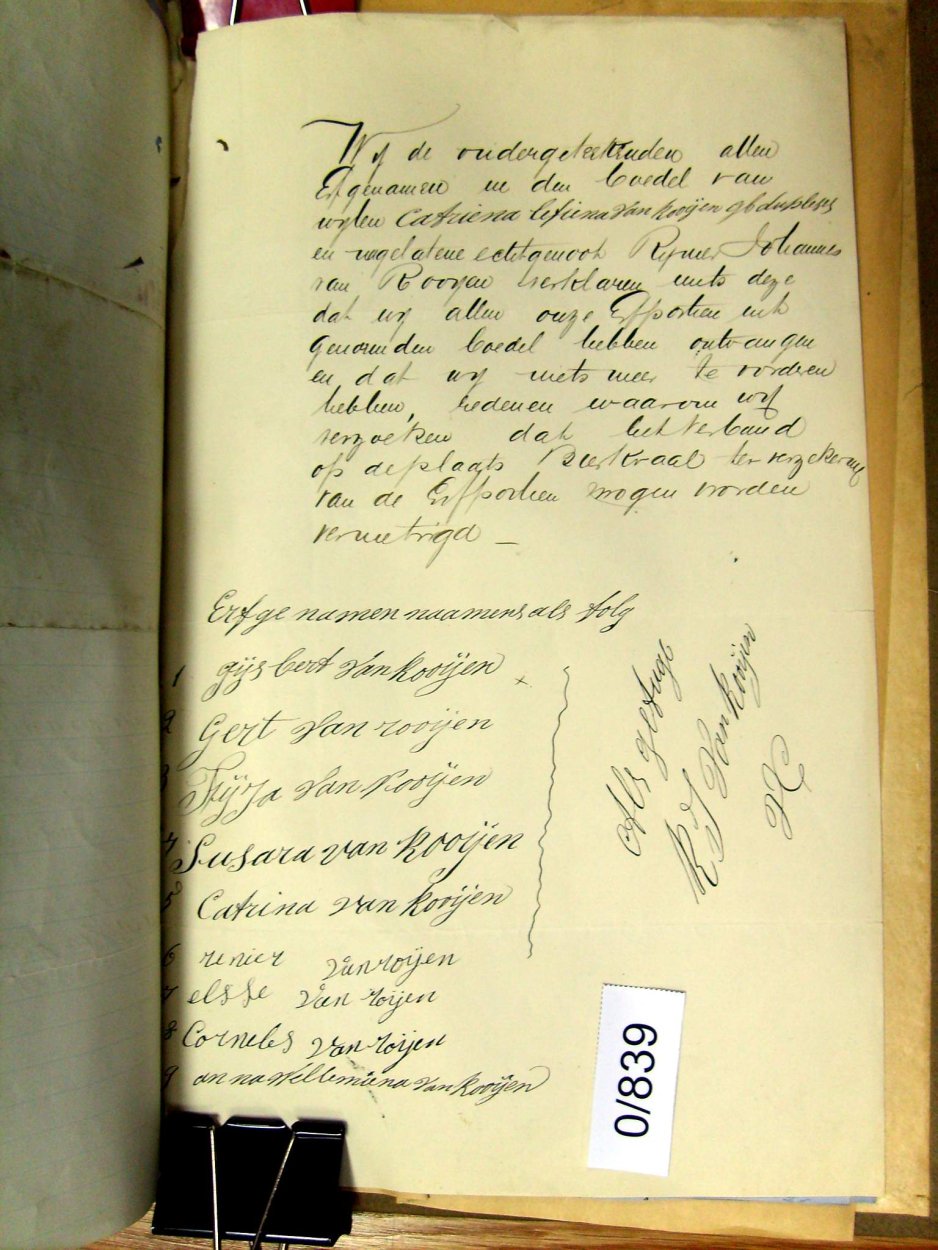 Wij de ondergeteekenden allen
Erfgenamen in den boedel van
wylen Catriena lefiena van kooijen gb duplesis
en nagelatene echtgenoot Reynier Johannes
van Rooyen verklaren mits deze
dat wij allen onze Erfportien uit
Genoemden boedel hebben ontvangen
en dat wij niets meer te vorderen
hebben, redenen waarom wij
verzoeken dat het verband
op de plaats Bierkraal ter verzekering
van de Erfportien mogen worden
vernietrigd —
Erfgenamen naamens als folg
1 gijsbert van kooijen
2 Gert van rooijen
3 van Rooijen
4 Susara van Rooijen
5 Catrina van kooijen
6 renier van roijen
7 elsje van roijen
8 Cornelis van roijen
9 anna Willemiena van Rooijen
Als getuge
R J van Rooijen
0/839